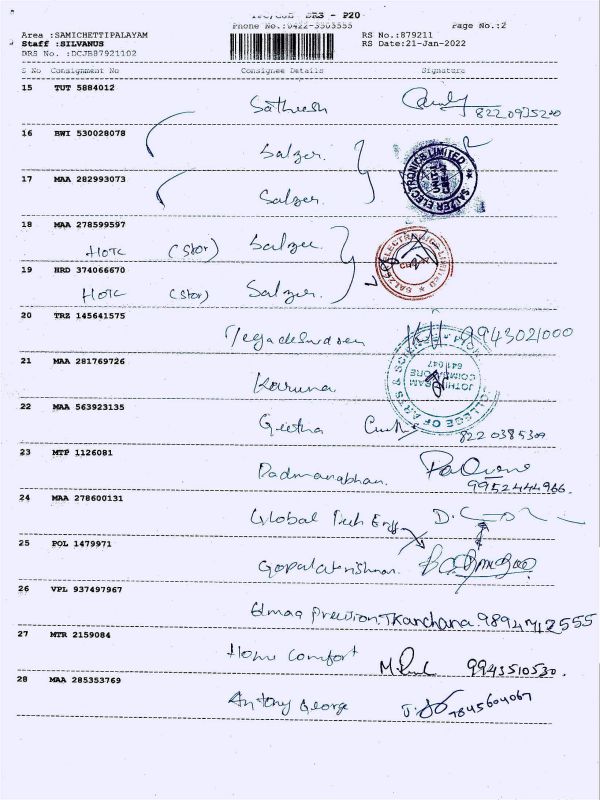 DRS - P20
Phone No.:0422-3303555 Page No.:2
Area :SAMICHETTIPALAYAM RS No.:879211
Staff :SILVANUS RS Date:21-Jan-2022
DRS No. :DCJB87921102
S No Consignment No Consignee Details Signature
15 TUT 5884012
Satheesh 8220935200
16 BWI 530028078
Salzer.
SALZER ELECTRONICS LIMITED
17 MAA 282993073
Salzer.
18 MAA 278599597
HOTC (Stor) Salzer
SALZER ELECTRONICS LIMITED
19 HRD 374066670
HOTC (Stor) Salzer.
20 TRZ 145641575
9943021000
21 MAA 281769726
Karuna
COLLEGE OF ARTS & SCIENCE
COIMBATORE
641 047
22 MAA 563923135
Geetha 8220385309
23 MTP 1126081
Padmanabhan. 9952444966.
24 MAA 278600131
Global Tech Engg
25 POL 1479971
Gopalakrishnan.
26 VPL 937497967
Elmaq Precision. T Kanchana 9894712555
27 MTR 2159084
Home Comfort 9943510530.
28 MAA 285353769
Antony George 7845604067